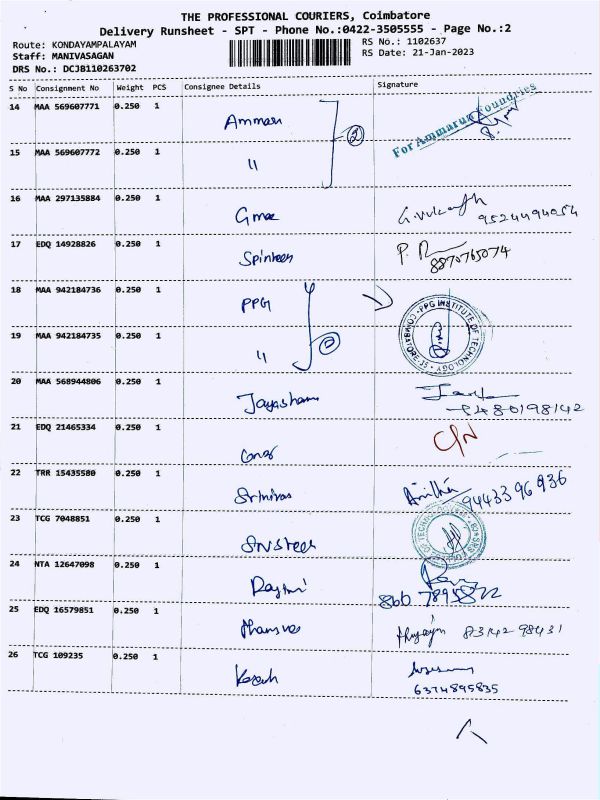 THE PROFESSIONAL COURIERS, Coimbatore
Delivery Runsheet - SPT - Phone No.:0422-3505555 - Page No.:2
Route: KONDAYAMPALAYAM
Staff: MANIVASAGAN
DRS No.: DCJB110263702
RS No.: 1102637
RS Date: 21-Jan-2023
S No Consignment No Weight PCS Consignee Details Signature
14 MAA 569607771 0.250 1 Amman 2 For Ammarun Foundries
15 MAA 569607772 0.250 1 "
16 MAA 297135884 0.250 1 9524494054
17 EDQ 14928826 0.250 1 8870765074
18 MAA 942184736 0.250 1 PPG PPG INSTITUTE OF TECHNOLOGY COIMBATORE-35
19 MAA 942184735 0.250 1 "
20 MAA 568944806 0.250 1 9480198142
21 EDQ 21465334 0.250 1
22 TRR 15435580 0.250 1 Srinivas 9443396936
23 TCG 7048851 0.250 1
24 NTA 12647098 0.250 1
25 EDQ 16579851 0.250 1 83142 98431
26 TCG 109235 0.250 1 6374895835